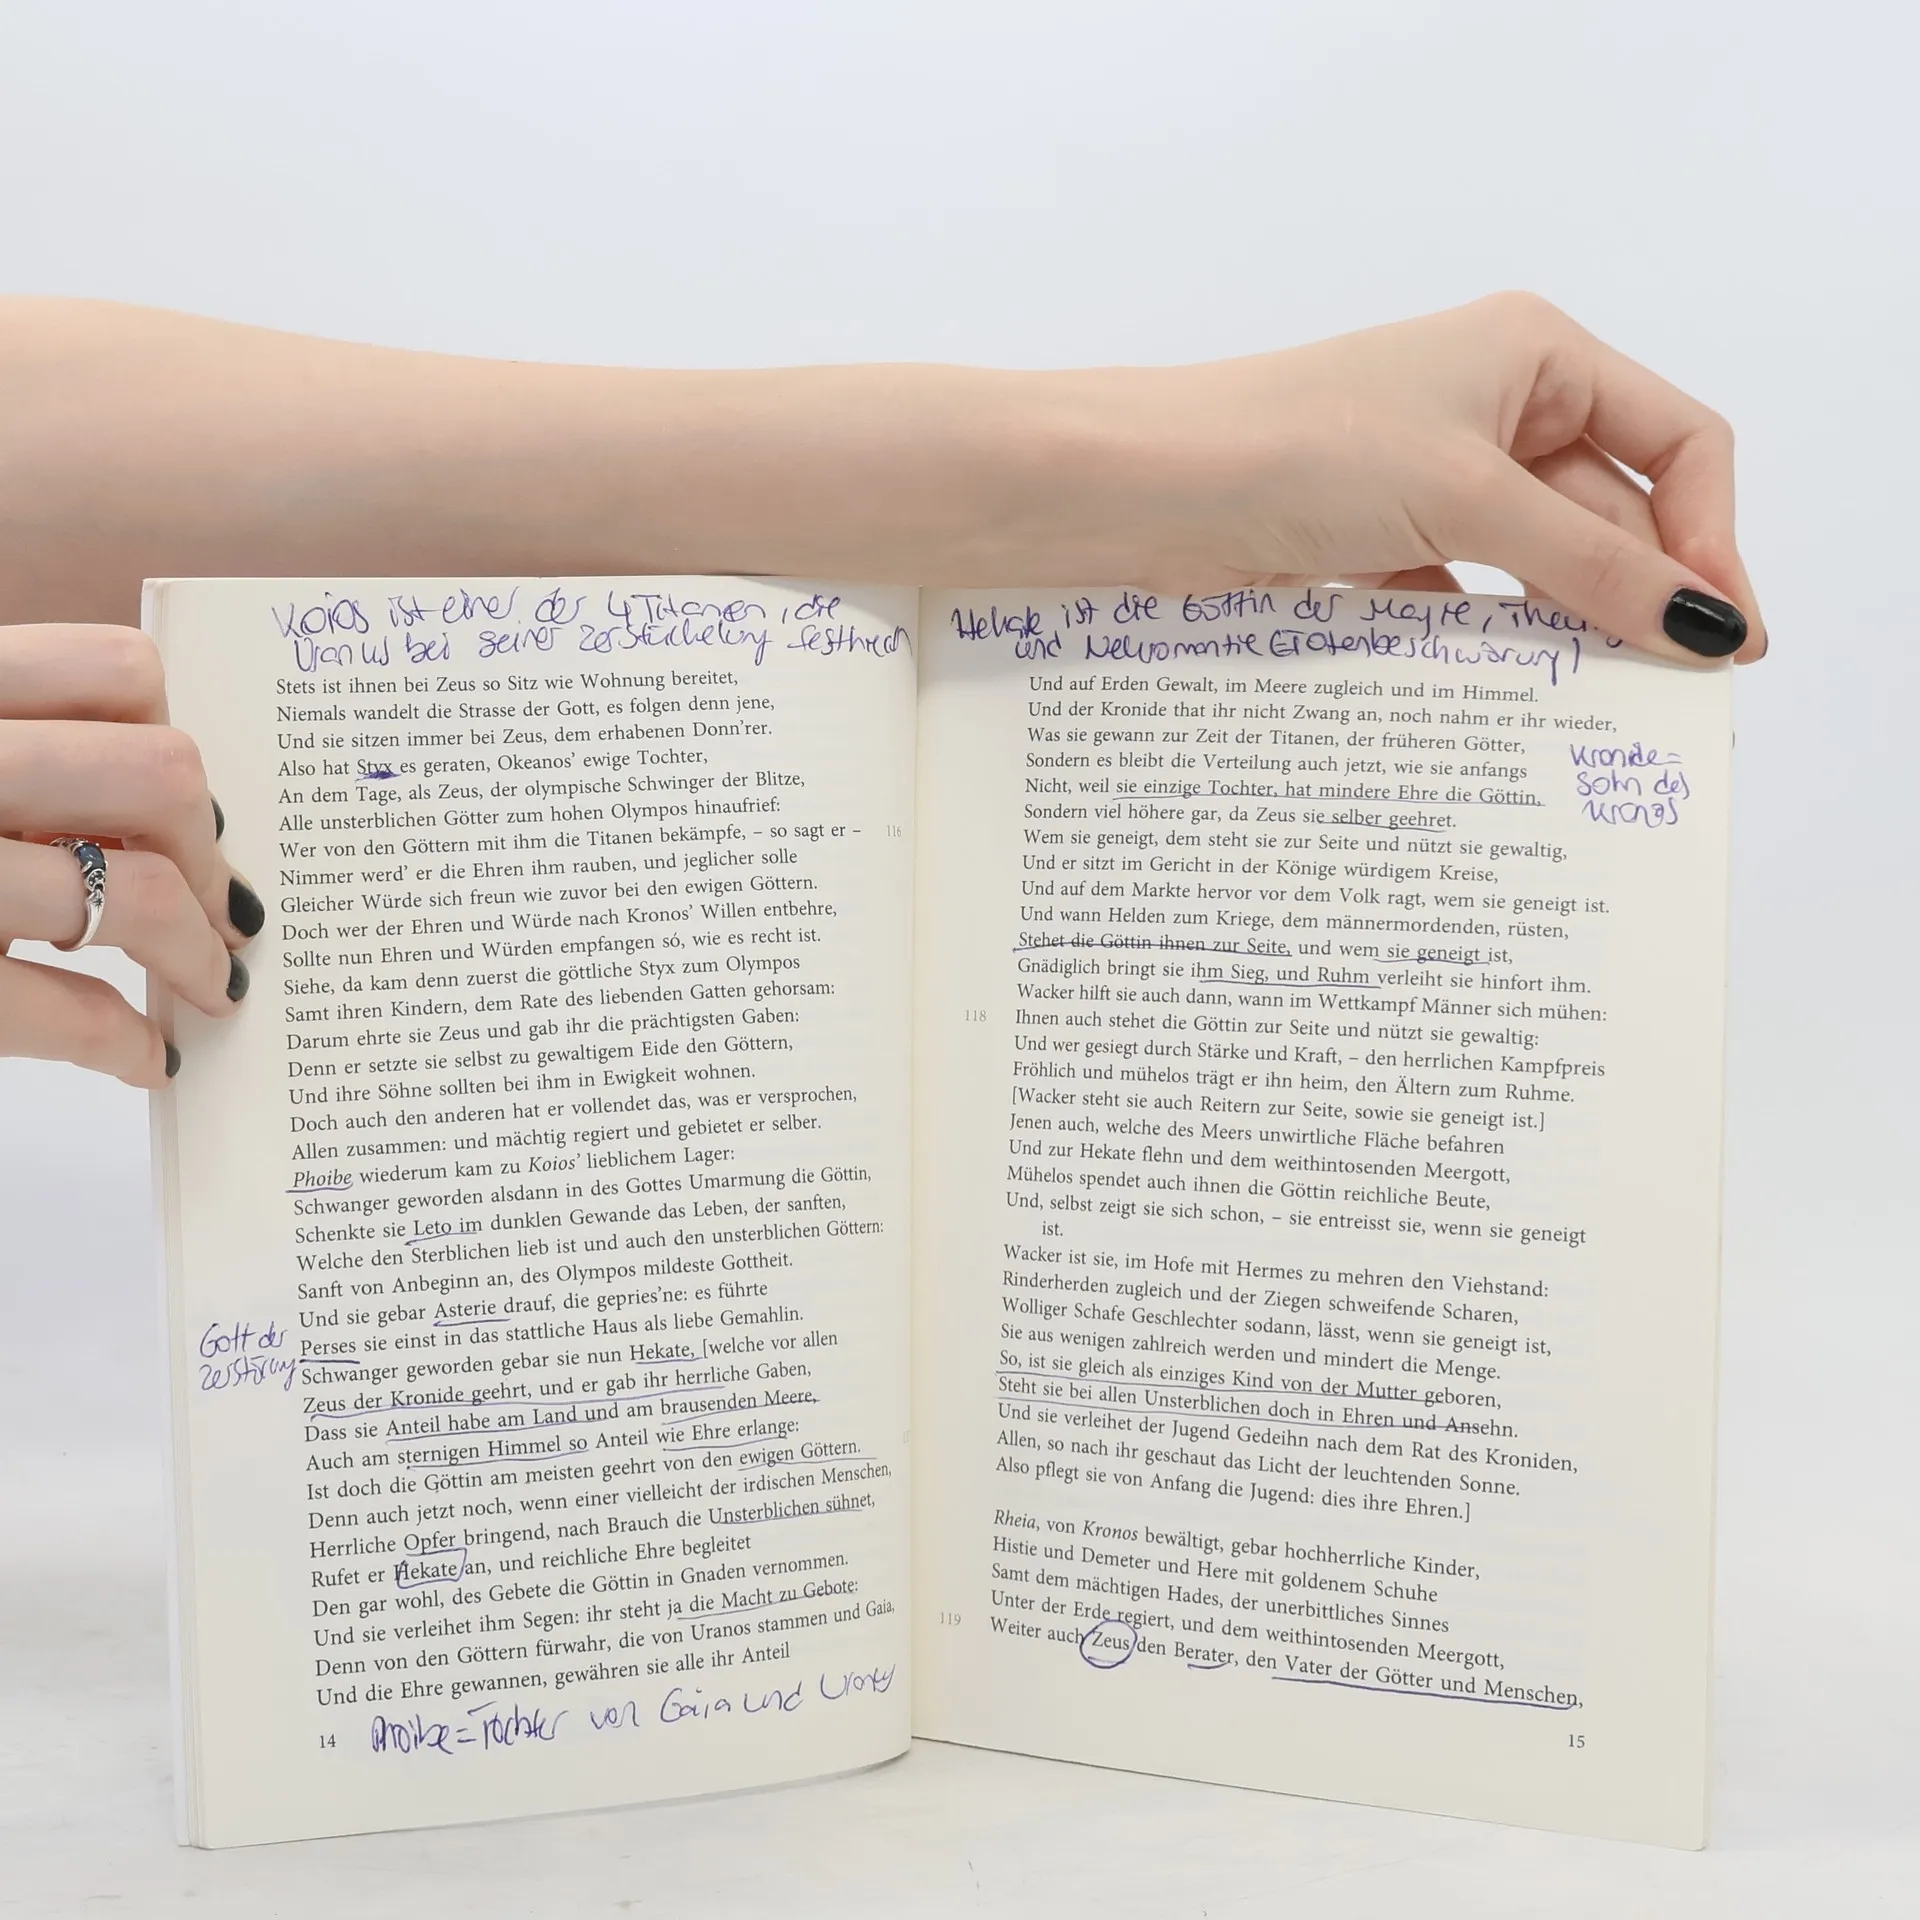 Koios ist einer der 4 Titanen, die
Uranus bei seiner Zerstückelung festhielten
Stets ist ihnen bei Zeus so Sitz wie Wohnung bereitet,
Niemals wandelt die Strasse der Gott, es folgen denn jene,
Und sie sitzen immer bei Zeus, dem erhabenen Donn'rer.
Also hat Styx es geraten, Okeanos' ewige Tochter,
An dem Tage, als Zeus, der olympische Schwinger der Blitze,
Alle unsterblichen Götter zum hohen Olympos hinaufrief:
Wer von den Göttern mit ihm die Titanen bekämpfe, – so sagt er – 116
Nimmer werd' er die Ehren ihm rauben, und jeglicher solle
Gleicher Würde sich freun wie zuvor bei den ewigen Göttern.
Doch wer der Ehren und Würde nach Kronos' Willen entbehre,
Sollte nun Ehren und Würden empfangen só, wie es recht ist.
Siehe, da kam denn zuerst die göttliche Styx zum Olympos
Samt ihren Kindern, dem Rate des liebenden Gatten gehorsam:
Darum ehrte sie Zeus und gab ihr die prächtigsten Gaben:
Denn er setzte sie selbst zu gewaltigem Eide den Göttern,
Und ihre Söhne sollten bei ihm in Ewigkeit wohnen.
Doch auch den anderen hat er vollendet das, was er versprochen,
Allen zusammen: und mächtig regiert und gebietet er selber.
Phoibe wiederum kam zu Koios' lieblichem Lager:
Schwanger geworden alsdann in des Gottes Umarmung die Göttin,
Schenkte sie Leto im dunklen Gewande das Leben, der sanften,
Welche den Sterblichen lieb ist und auch den unsterblichen Göttern:
Sanft von Anbeginn an, des Olympos mildeste Gottheit.
Und sie gebar Asterie drauf, die gepries'ne: es führte
Gott der
Zerstörung
Perses sie einst in das stattliche Haus als liebe Gemahlin.
Schwanger geworden gebar sie nun Hekate, [welche vor allen
Zeus der Kronide geehrt, und er gab ihr herrliche Gaben,
Dass sie Anteil habe am Land und am brausenden Meere,
Auch am sternigen Himmel so Anteil wie Ehre erlange:
Ist doch die Göttin am meisten geehrt von den ewigen Göttern.
Denn auch jetzt noch, wenn einer vielleicht der irdischen Menschen,
Herrliche Opfer bringend, nach Brauch die Unsterblichen sühnet,
Rufet er Hekate an, und reichliche Ehre begleitet
Den gar wohl, des Gebete die Göttin in Gnaden vernommen.
Und sie verleihet ihm Segen: ihr steht ja die Macht zu Gebote:
Denn von den Göttern fürwahr, die von Uranos stammen und Gaia,
Und die Ehre gewannen, gewähren sie alle ihr Anteil
14
Phoibe = Tochter von Gaia und Uranus
Hekate ist die Göttin der Magie,
und Nekromantie (Totenbeschwörung)
Und auf Erden Gewalt, im Meere zugleich und im Himmel.
Und der Kronide that ihr nicht Zwang an, noch nahm er ihr wieder,
Was sie gewann zur Zeit der Titanen, der früheren Götter,
Sondern es bleibt die Verteilung auch jetzt, wie sie anfangs
Kronide =
Sohn des
Kronos
Nicht, weil sie einzige Tochter, hat mindere Ehre die Göttin,
Sondern viel höhere gar, da Zeus sie selber geehret.
Wem sie geneigt, dem steht sie zur Seite und nützt sie gewaltig,
Und er sitzt im Gericht in der Könige würdigem Kreise,
Und auf dem Markte hervor vor dem Volk ragt, wem sie geneigt ist.
Und wann Helden zum Kriege, dem männermordenden, rüsten,
Stehet die Göttin ihnen zur Seite, und wem sie geneigt ist,
Gnädiglich bringt sie ihm Sieg, und Ruhm verleiht sie hinfort ihm.
Wacker hilft sie auch dann, wann im Wettkampf Männer sich mühen:
118 Ihnen auch stehet die Göttin zur Seite und nützt sie gewaltig:
Und wer gesiegt durch Stärke und Kraft, – den herrlichen Kampfpreis
Fröhlich und mühelos trägt er ihn heim, den Ältern zum Ruhme.
[Wacker steht sie auch Reitern zur Seite, sowie sie geneigt ist.]
Jenen auch, welche des Meers unwirtliche Fläche befahren
Und zur Hekate flehn und dem weithintosenden Meergott,
Mühelos spendet auch ihnen die Göttin reichliche Beute,
Und, selbst zeigt sie sich schon, – sie entreisst sie, wenn sie geneigt
ist.
Wacker ist sie, im Hofe mit Hermes zu mehren den Viehstand:
Rinderherden zugleich und der Ziegen schweifende Scharen,
Wolliger Schafe Geschlechter sodann, lässt, wenn sie geneigt ist,
Sie aus wenigen zahlreich werden und mindert die Menge.
So, ist sie gleich als einziges Kind von der Mutter geboren,
Steht sie bei allen Unsterblichen doch in Ehren und Ansehn.
Und sie verleihet der Jugend Gedeihn nach dem Rat des Kroniden,
Allen, so nach ihr geschaut das Licht der leuchtenden Sonne.
Also pflegt sie von Anfang die Jugend: dies ihre Ehren.]
Rheia, von Kronos bewältigt, gebar hochherrliche Kinder,
Histie und Demeter und Here mit goldenem Schuhe
Samt dem mächtigen Hades, der unerbittliches Sinnes
Unter der Erde regiert, und dem weithintosenden Meergott,
119 Weiter auch Zeus den Berater, den Vater der Götter und Menschen,
15